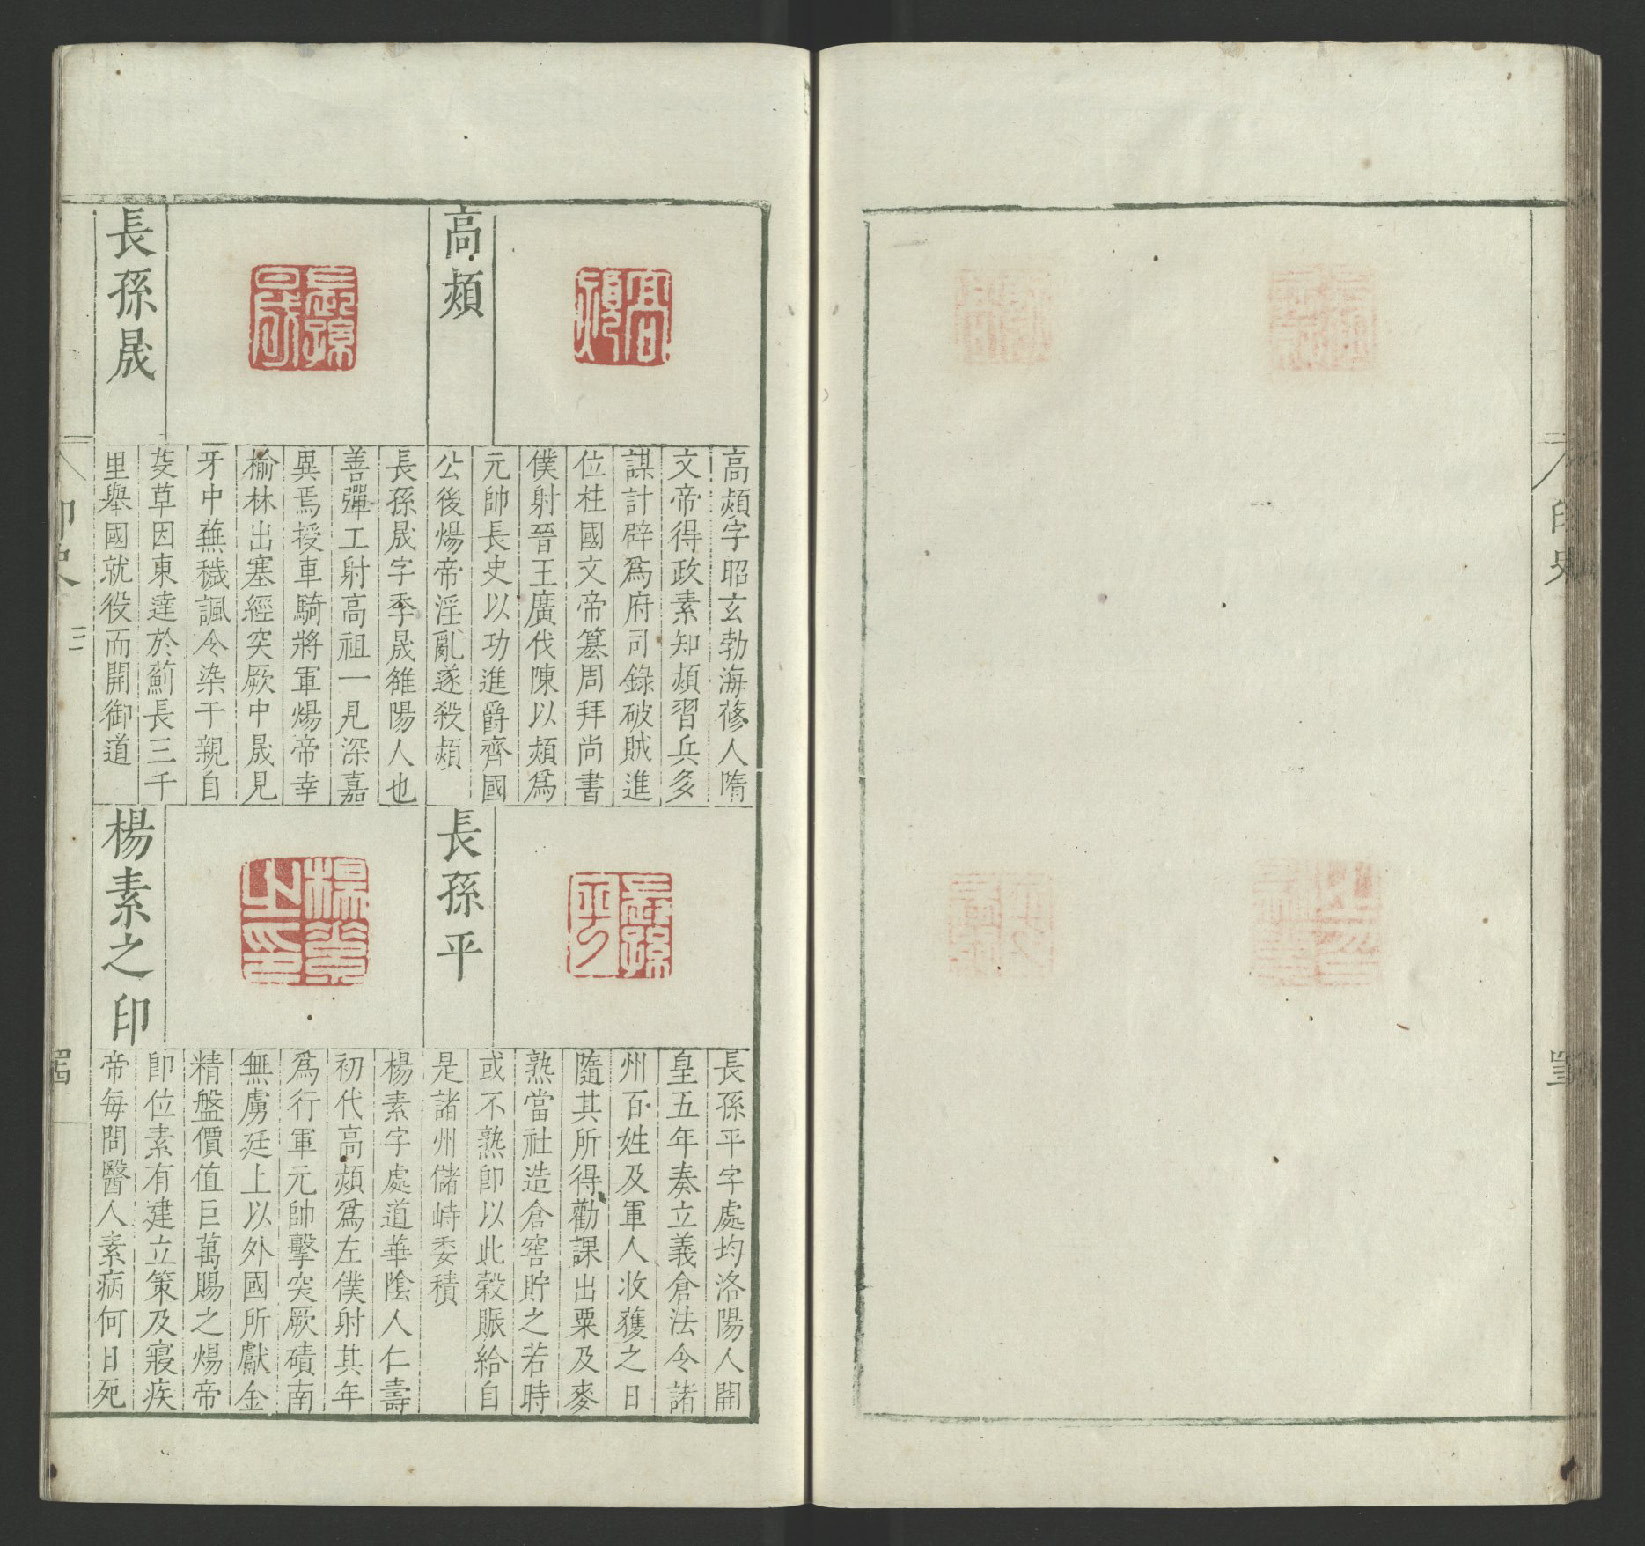 高熲
高熲字昭玄勃海蓚人隋
文帝得政素知熲習兵多
謀計辟爲府司錄破賊進
位柱國文帝篡周拜尚書
僕射晉王廣伐陳以熲爲
元帥長史以功進爵齊國
公後煬帝淫亂遂殺熲
長孫晟
長孫晟字季晟雒陽人也
善彈工射高祖一見深嘉
異焉授車騎將軍煬帝幸
榆林出塞經突厥中晟見
牙中蕪穢諷令染干親自
芟草因東達於薊長三千
里舉國就役而開御道
長孫平
長孫平字處均洛陽人開
皇五年奏立義倉法令諸
州百姓及軍人收獲之日
隨其所得勸課出粟及麥
熟當社造倉窖貯之若時
或不熟卽以此穀賑給自
是諸州儲峙委積
楊素之印
楊素字處道華陰人仁壽
初代高熲爲左僕射其年
爲行軍元帥擊突厥磧南
無虜廷上以外國所獻金
精盤價值巨萬賜之煬帝
卽位素有建立策及寢疾
帝每問醫人素病何日死
印史
三